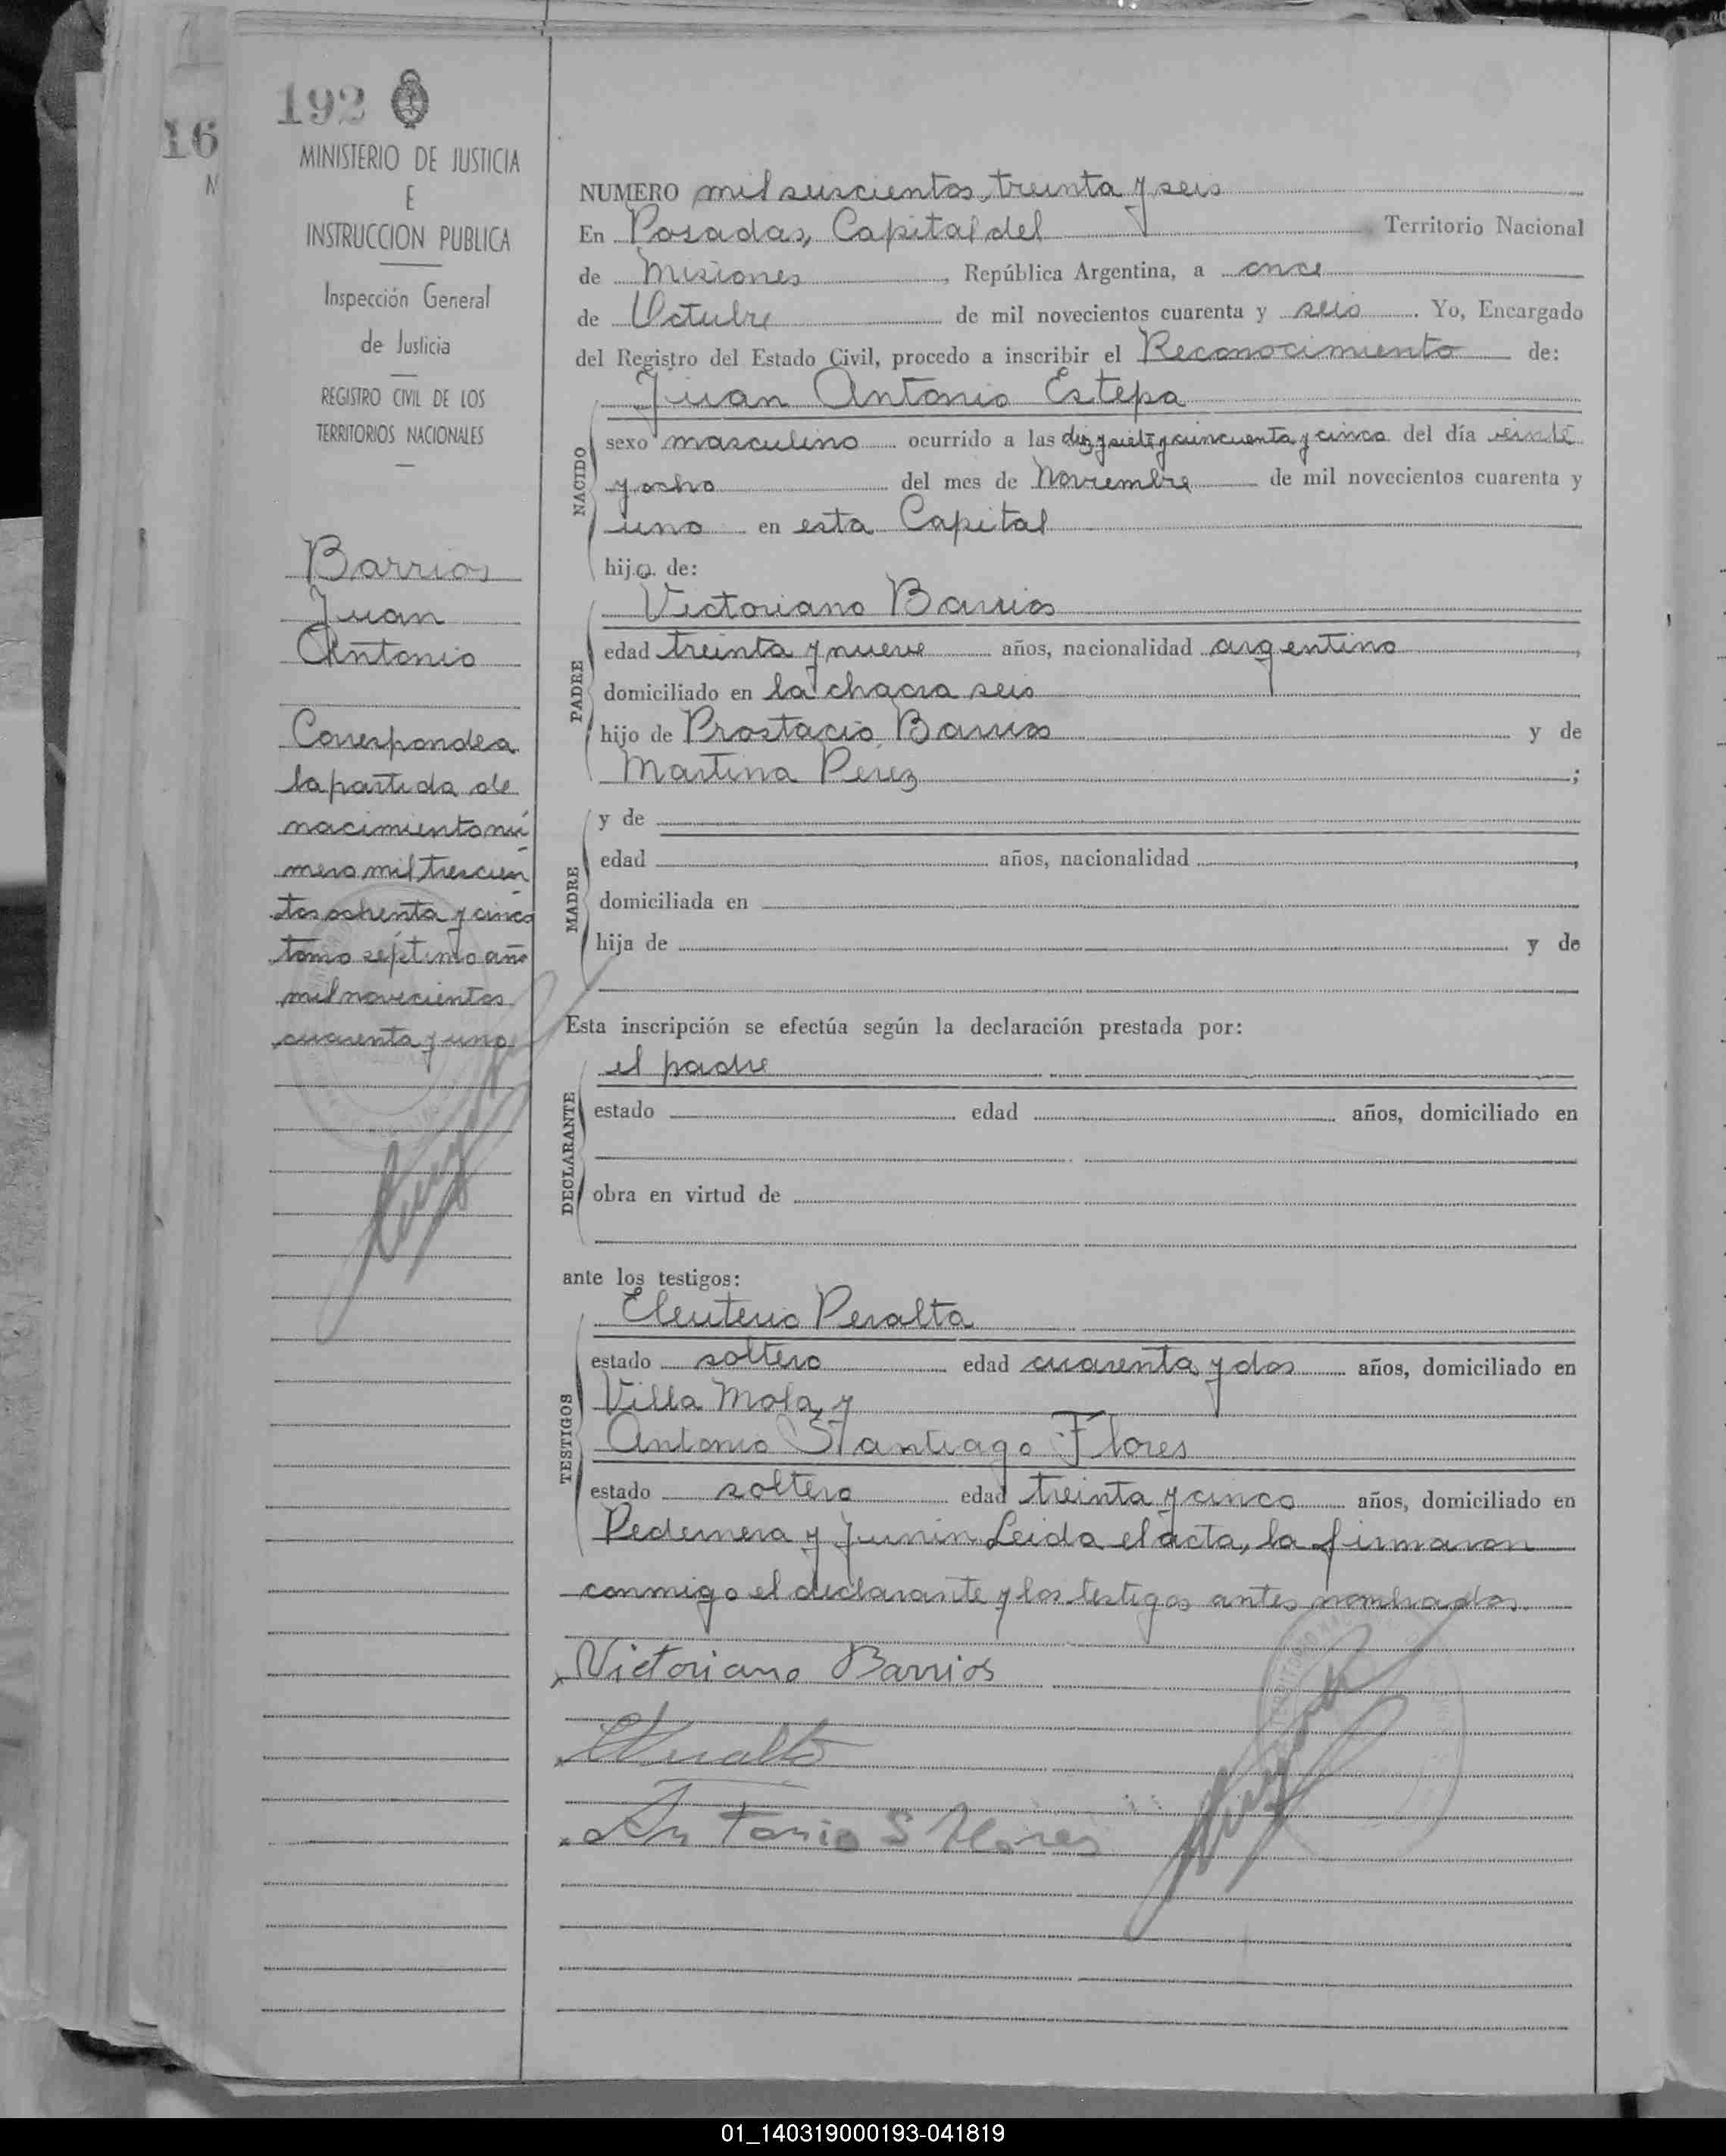 192
16
N
MINISTERIO DE JUSTICIA
E
INSTRUCCION PUBLICA
Inspección General
de Justicia
REGISTRO CIVIL DE LOS
TERRITORIOS NACIONALES
Barrios
Juan
Antonio
Corresponde a
la partida de
nacimiento nú
mero mil trescien
tos ochenta y cinco
tomo séptimo año
mil novecientos
cuarenta y uno
NUMERO mil suscientos treinta y seis
En Posadas, Capital del Territorio Nacional
de Misiones, República Argentina, a once
de Octubre de mil novecientos cuarenta y seis. Yo, Encargado
del Registro del Estado Civil, procedo a inscribir el Reconocimiento de:
NACIDO
Juan Antonio Estepa
sexo masculino ocurrido a las diez y siete y cincuenta y cinco del día veinte
y ocho del mes de Noviembre de mil novecientos cuarenta y
uno en esta Capital
hijo de:
PADRE
Victoriano Barrios
edad treinta y nueve años, nacionalidad argentino,
domiciliado en la chacra seis
hijo de Prostacio Barrios y de
Martina Perez;
MADRE
y de
edad años, nacionalidad,
domiciliada en
hija de y de
Esta inscripción se efectúa según la declaración prestada por:
DECLARANTE
el padre
estado edad años, domiciliado en
obra en virtud de
ante los testigos:
TESTIGOS
Eleuterio Peralta
estado soltero edad cuarenta y dos años, domiciliado en
Villa Mola, y
Antonio Santiago Flores
estado soltero edad treinta y cinco años, domiciliado en
Pedernera y Junin. Leida el acta, la firmaron
conmigo el declarante y los testigos antes nombrados.
Victoriano Barrios
EPeralta
Antonio S Flores
01_140319000193-041819